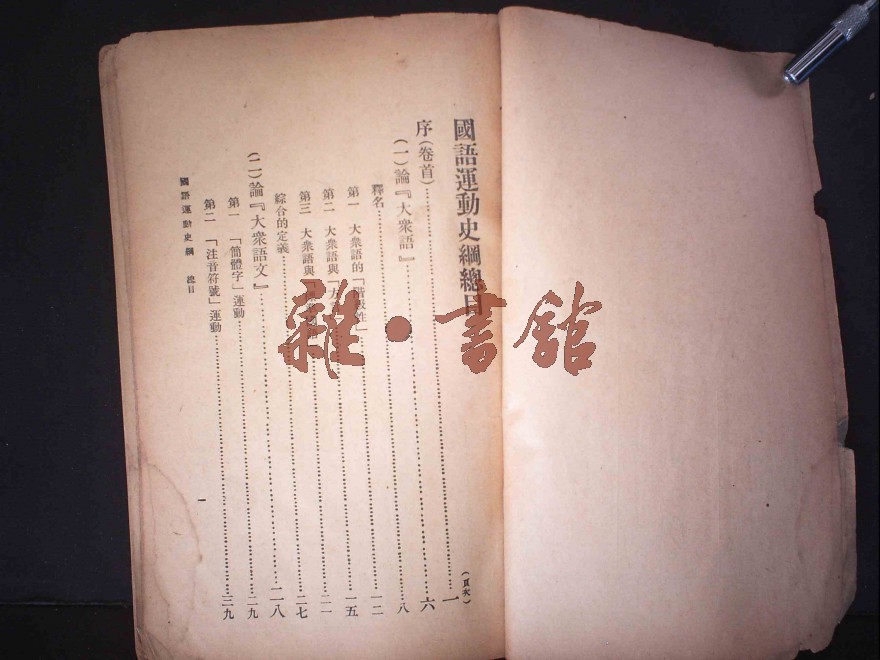 國語運動史綱總目
(頁次)
序(卷首)……一
(一)論『大衆語』……六
釋名……八
第一 大衆語的「 性」……一二
第二 大衆語與「方……一五
第三 大衆語與……二一
綜合的定義……二七
(二)論『大衆語文』……二八
第一 「簡體字」運動……二九
第二 「注音符號」運動……三九
國語運動史綱 總目
一
雜•書館